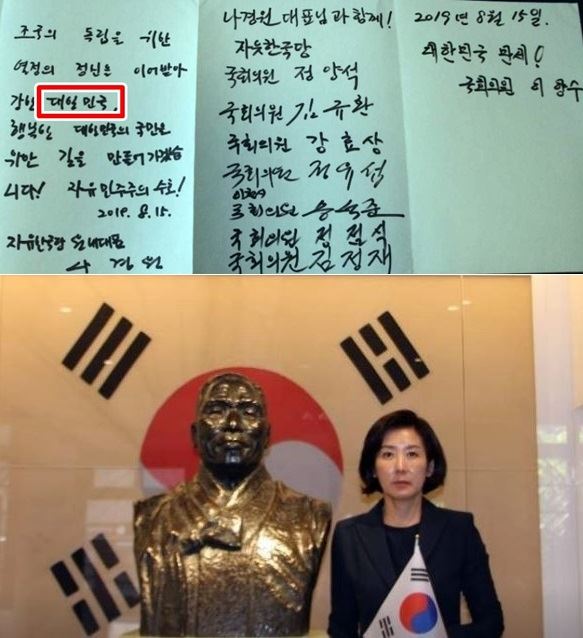 조국의 독립을 위한
열정의 정신을 이어받아
강한 대일민국,
행복한 대한민국의 국민을
위한 길을 만들어가겠습
니다! 자유민주주의 수호!
2019. 8. 15.
자유한국당 원내대표
나경원
나경원 대표님과 함께!
자유한국당
국회의원 정양석
국회의원 김규환
국회의원 강효상
국회의원 정유섭
국회의원 송석준
국회의원 정점식
국회의원 김정재
2019년 8월 15일.
대한민국 만세!
국회의원 이양수